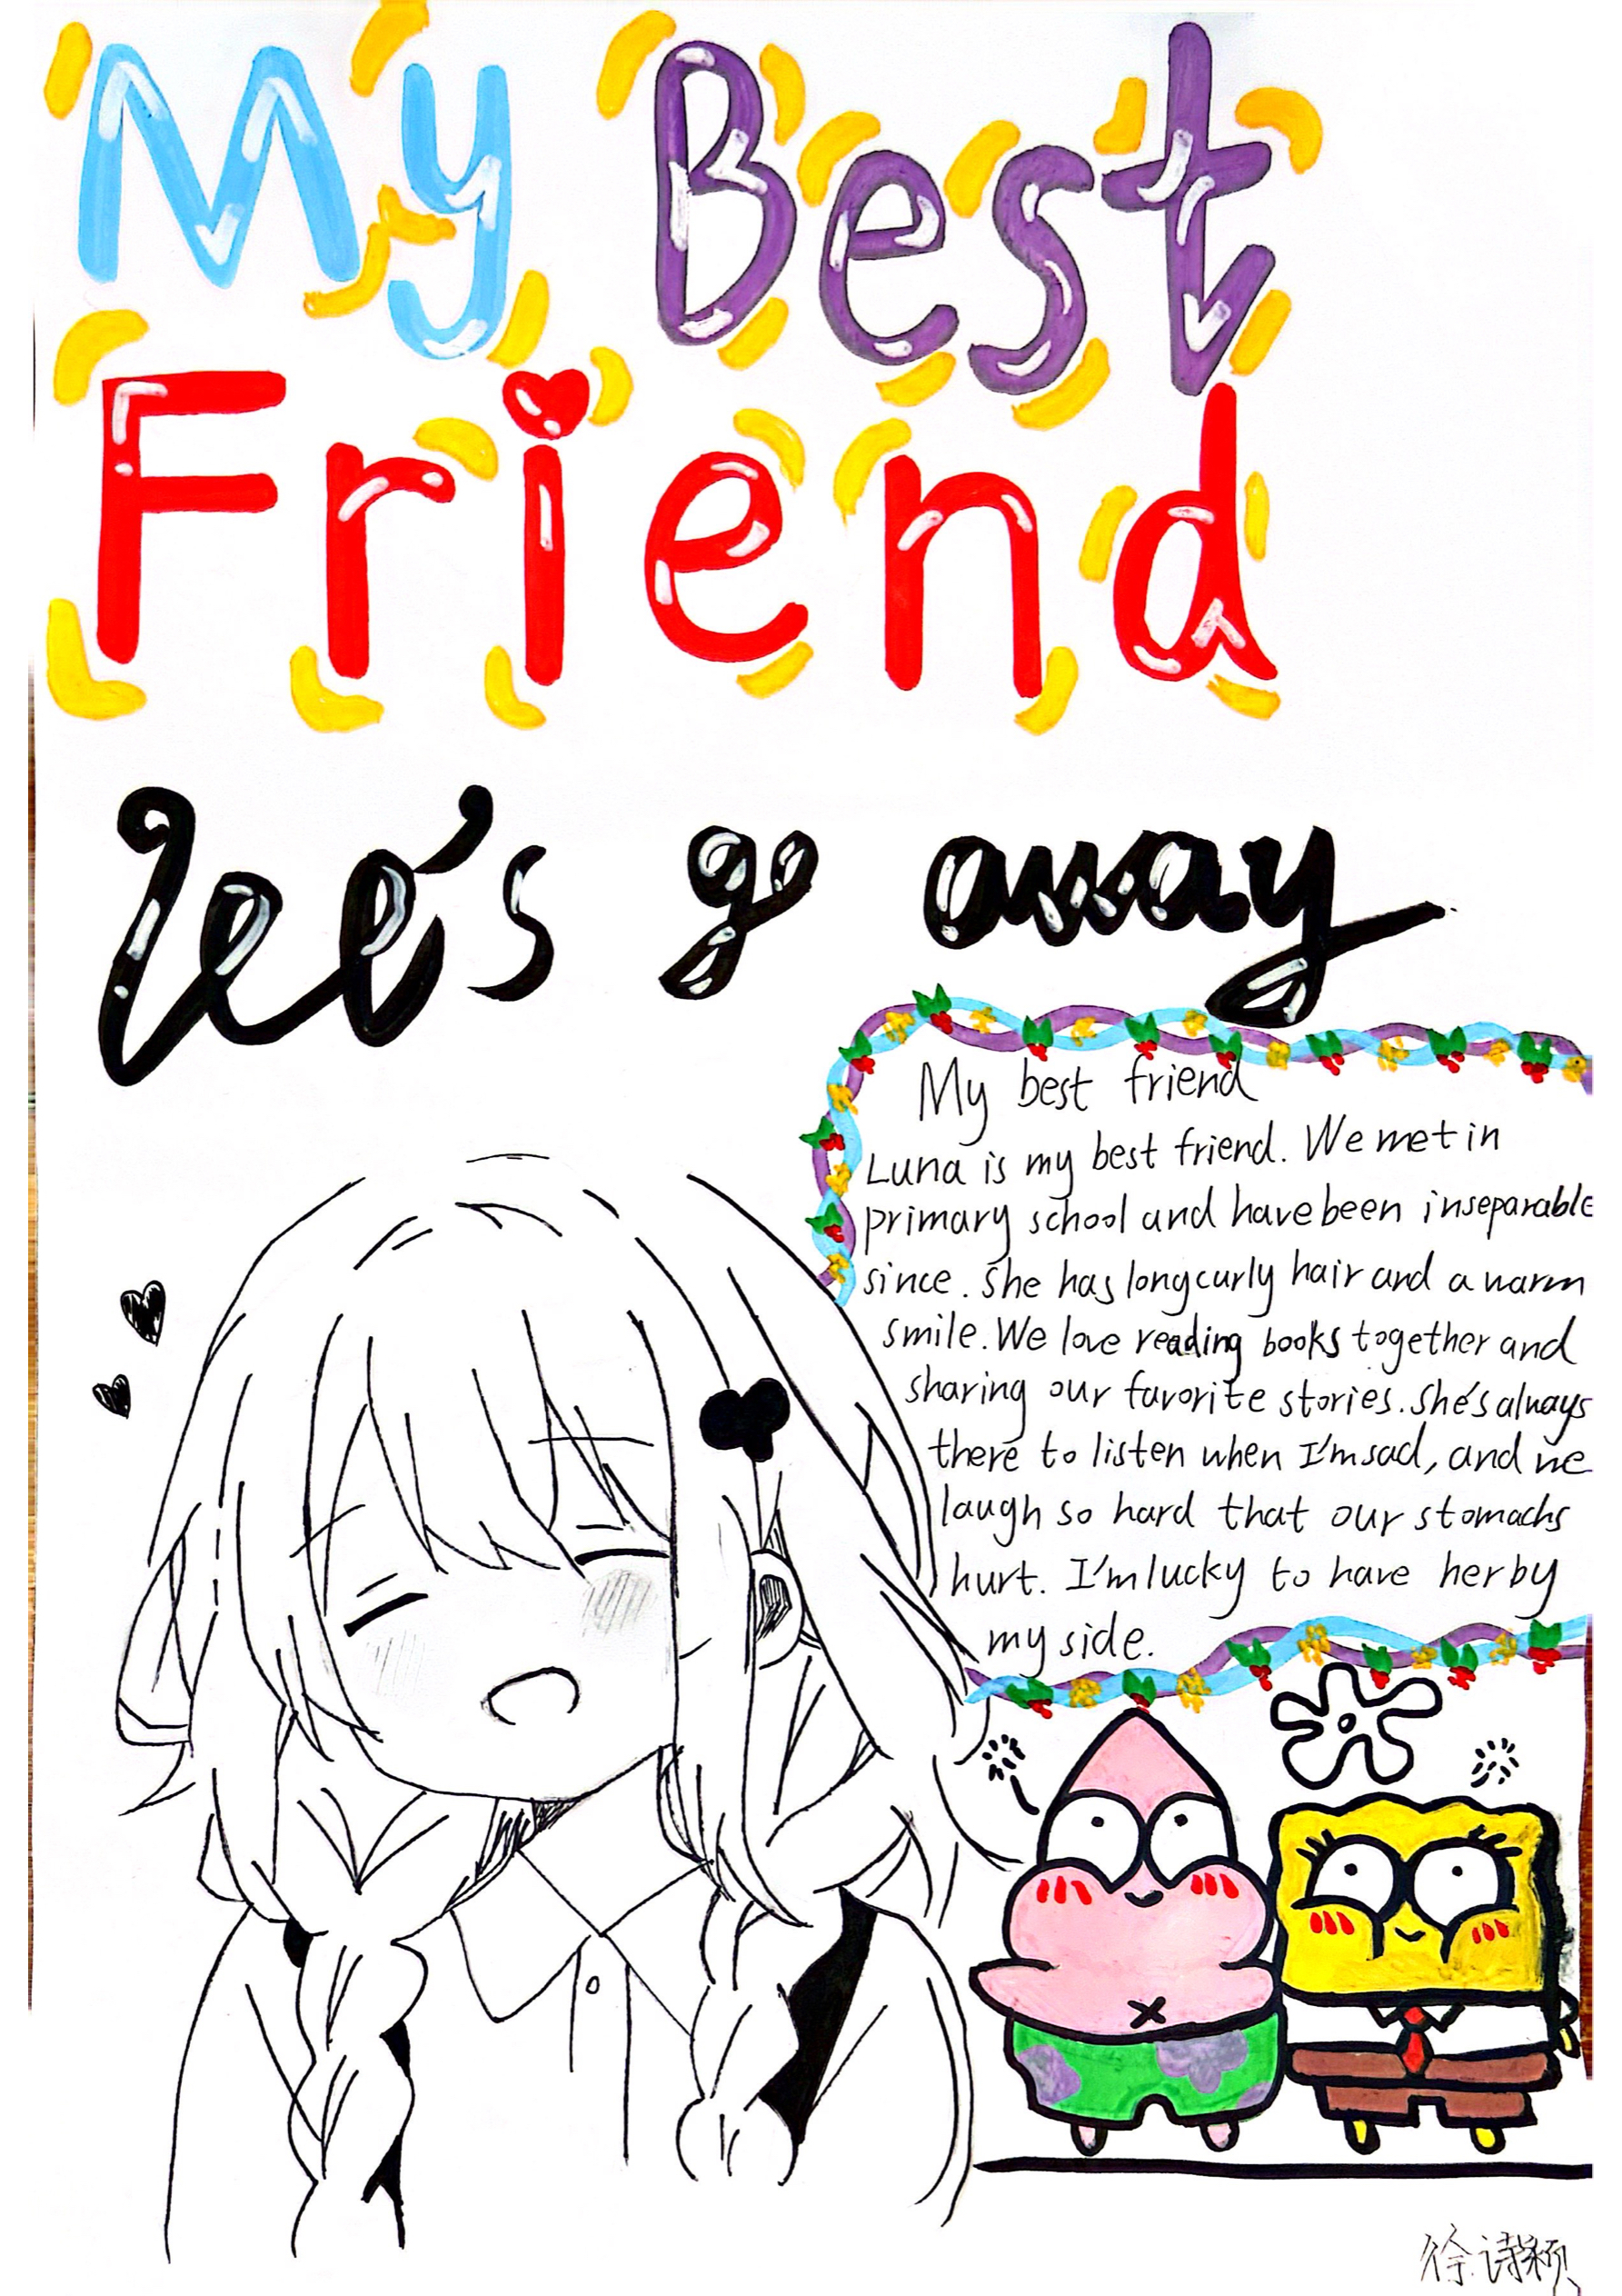 My Best
Friend
let's go away
My best friend
Luna is my best friend. We met in
primary school and have been inseparable
since. She has long curly hair and a warm
smile. We love reading books together and
sharing our favorite stories. She's always
there to listen when I'm sad, and we
laugh so hard that our stomachs
hurt. I'm lucky to have her by
my side.
徐诗颖